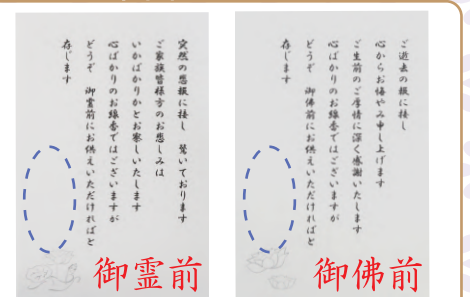 突然の悲報に接し 驚いております
ご家族皆様方のお悲しみは
いかばかりかとお察しいたします
心ばかりのお線香ではございますが
どうぞ 御霊前にお供えいただければと
存じます
御霊前
ご逝去の報に接し
心からお悔やみ申し上げます
ご生前のご厚情に深く感謝いたします
心ばかりのお線香ではございますが
どうぞ 御佛前にお供えいただければと
存じます
御佛前